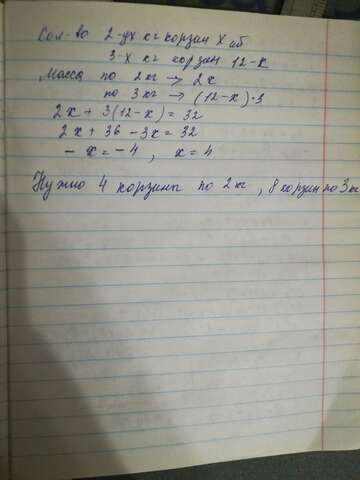 Кол-во 2-ух кг корзин X
3-х кг корзин 12-x
Масса по 2кг → 2x
по 3кг → (12-x)·3
2x + 3(12-x) = 32
2x + 36 - 3x = 32
- x = - 4, x = 4
Нужно 4 корзины по 2кг, 8 корзин по 3кг